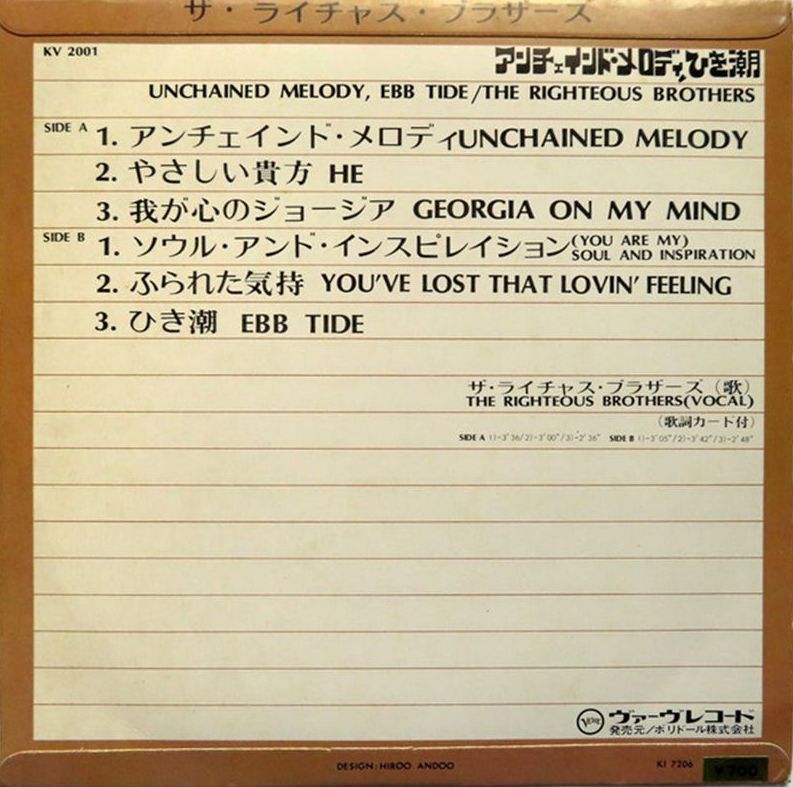 ザ・ライチャス・ブラザーズ
KV 2001
アンチェインド・メロディ,ひき潮
UNCHAINED MELODY, EBB TIDE/THE RIGHTEOUS BROTHERS
SIDE A 1. アンチェインド・メロディ UNCHAINED MELODY
2. やさしい貴方 HE
3. 我が心のジョージア GEORGIA ON MY MIND
SIDE B 1. ソウル・アンド・インスピレイション (YOU ARE MY) SOUL AND INSPIRATION
2. ふられた気持 YOU'VE LOST THAT LOVIN' FEELING
3. ひき潮 EBB TIDE
ザ・ライチャス・ブラザーズ(歌)
THE RIGHTEOUS BROTHERS(VOCAL)
(歌詞カード付)
SIDE A 1)-3'36/2)-3'00"/3)-2'36" SIDE B 1)-3'05"/2)-3'42"/3)-2'48"
VERVE ヴァーヴレコード
発売元/ポリドール株式会社
DESIGN:HIROO ANDOO
KI 7206 ¥700